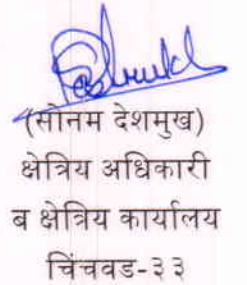 (सोनम देशमुख)
क्षेत्रिय अधिकारी
ब क्षेत्रिय कार्यालय
चिंचवड-३३